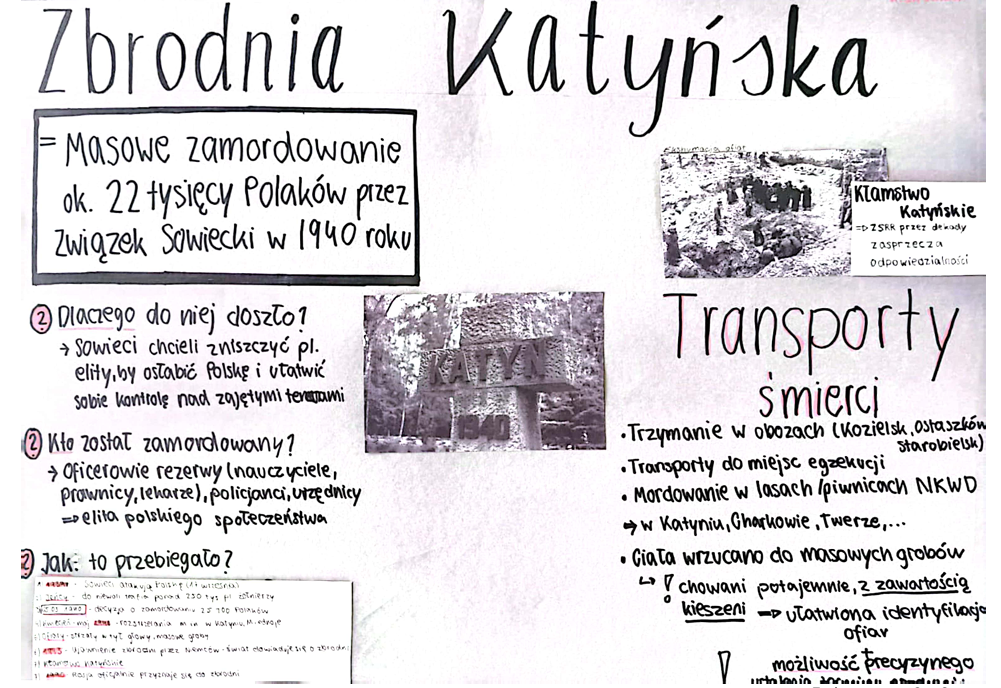 Zbrodnia Katyńska
= Masowe zamordowanie
ok. 22 tysięcy Polaków przez
Związek Sowiecki w 1940 roku
ekshumacja ofiar
Kłamstwo
Katyńskie
=> ZSRR przez dekady
zasprzecza
odpowiedzialności
? Dlaczego do niej doszło?
→ Sowieci chcieli zniszczyć pl.
elity, by osłabić Polskę i ułatwić
sobie kontrolę nad zajętymi terenami
KATYŃ
1940
? Kto został zamordowany?
→ Oficerowie rezerwy (nauczyciele,
prawnicy, lekarze), policjanci, urzędnicy
=> elita polskiego społeczeństwa
? Jak to przebiegało?
- Sowieci atakują Polskę (17 września)
- do niewoli trafia ponad 230 tys pl. żołnierzy
5.03.1940 - decyzja o zamordowaniu 25 700 Polaków
- rozstrzelania m.in. w Katyniu,
Ofiary - strzały w tył głowy, masowe groby
- Ujawnienie zbrodni przez Niemców - świat dowiaduje się o zbrodni
Kłamstwo Katyńskie
Rosja oficjalnie przyznaje się do zbrodni
Transporty
śmierci
• Trzymanie w obozach (Kozielsk, Ostaszków
Starobielsk)
• Transporty do miejsc egzekucji
• Mordowanie w lasach/piwnicach NKWD
→ w Katyniu, Charkowie, Twerze,...
• Ciała wrzucano do masowych grobów
↳ ! chowani potajemnie, z zawartością
kieszeni => ułatwiona identyfikacja
ofiar
! możliwość precyzyjnego
ustalenia